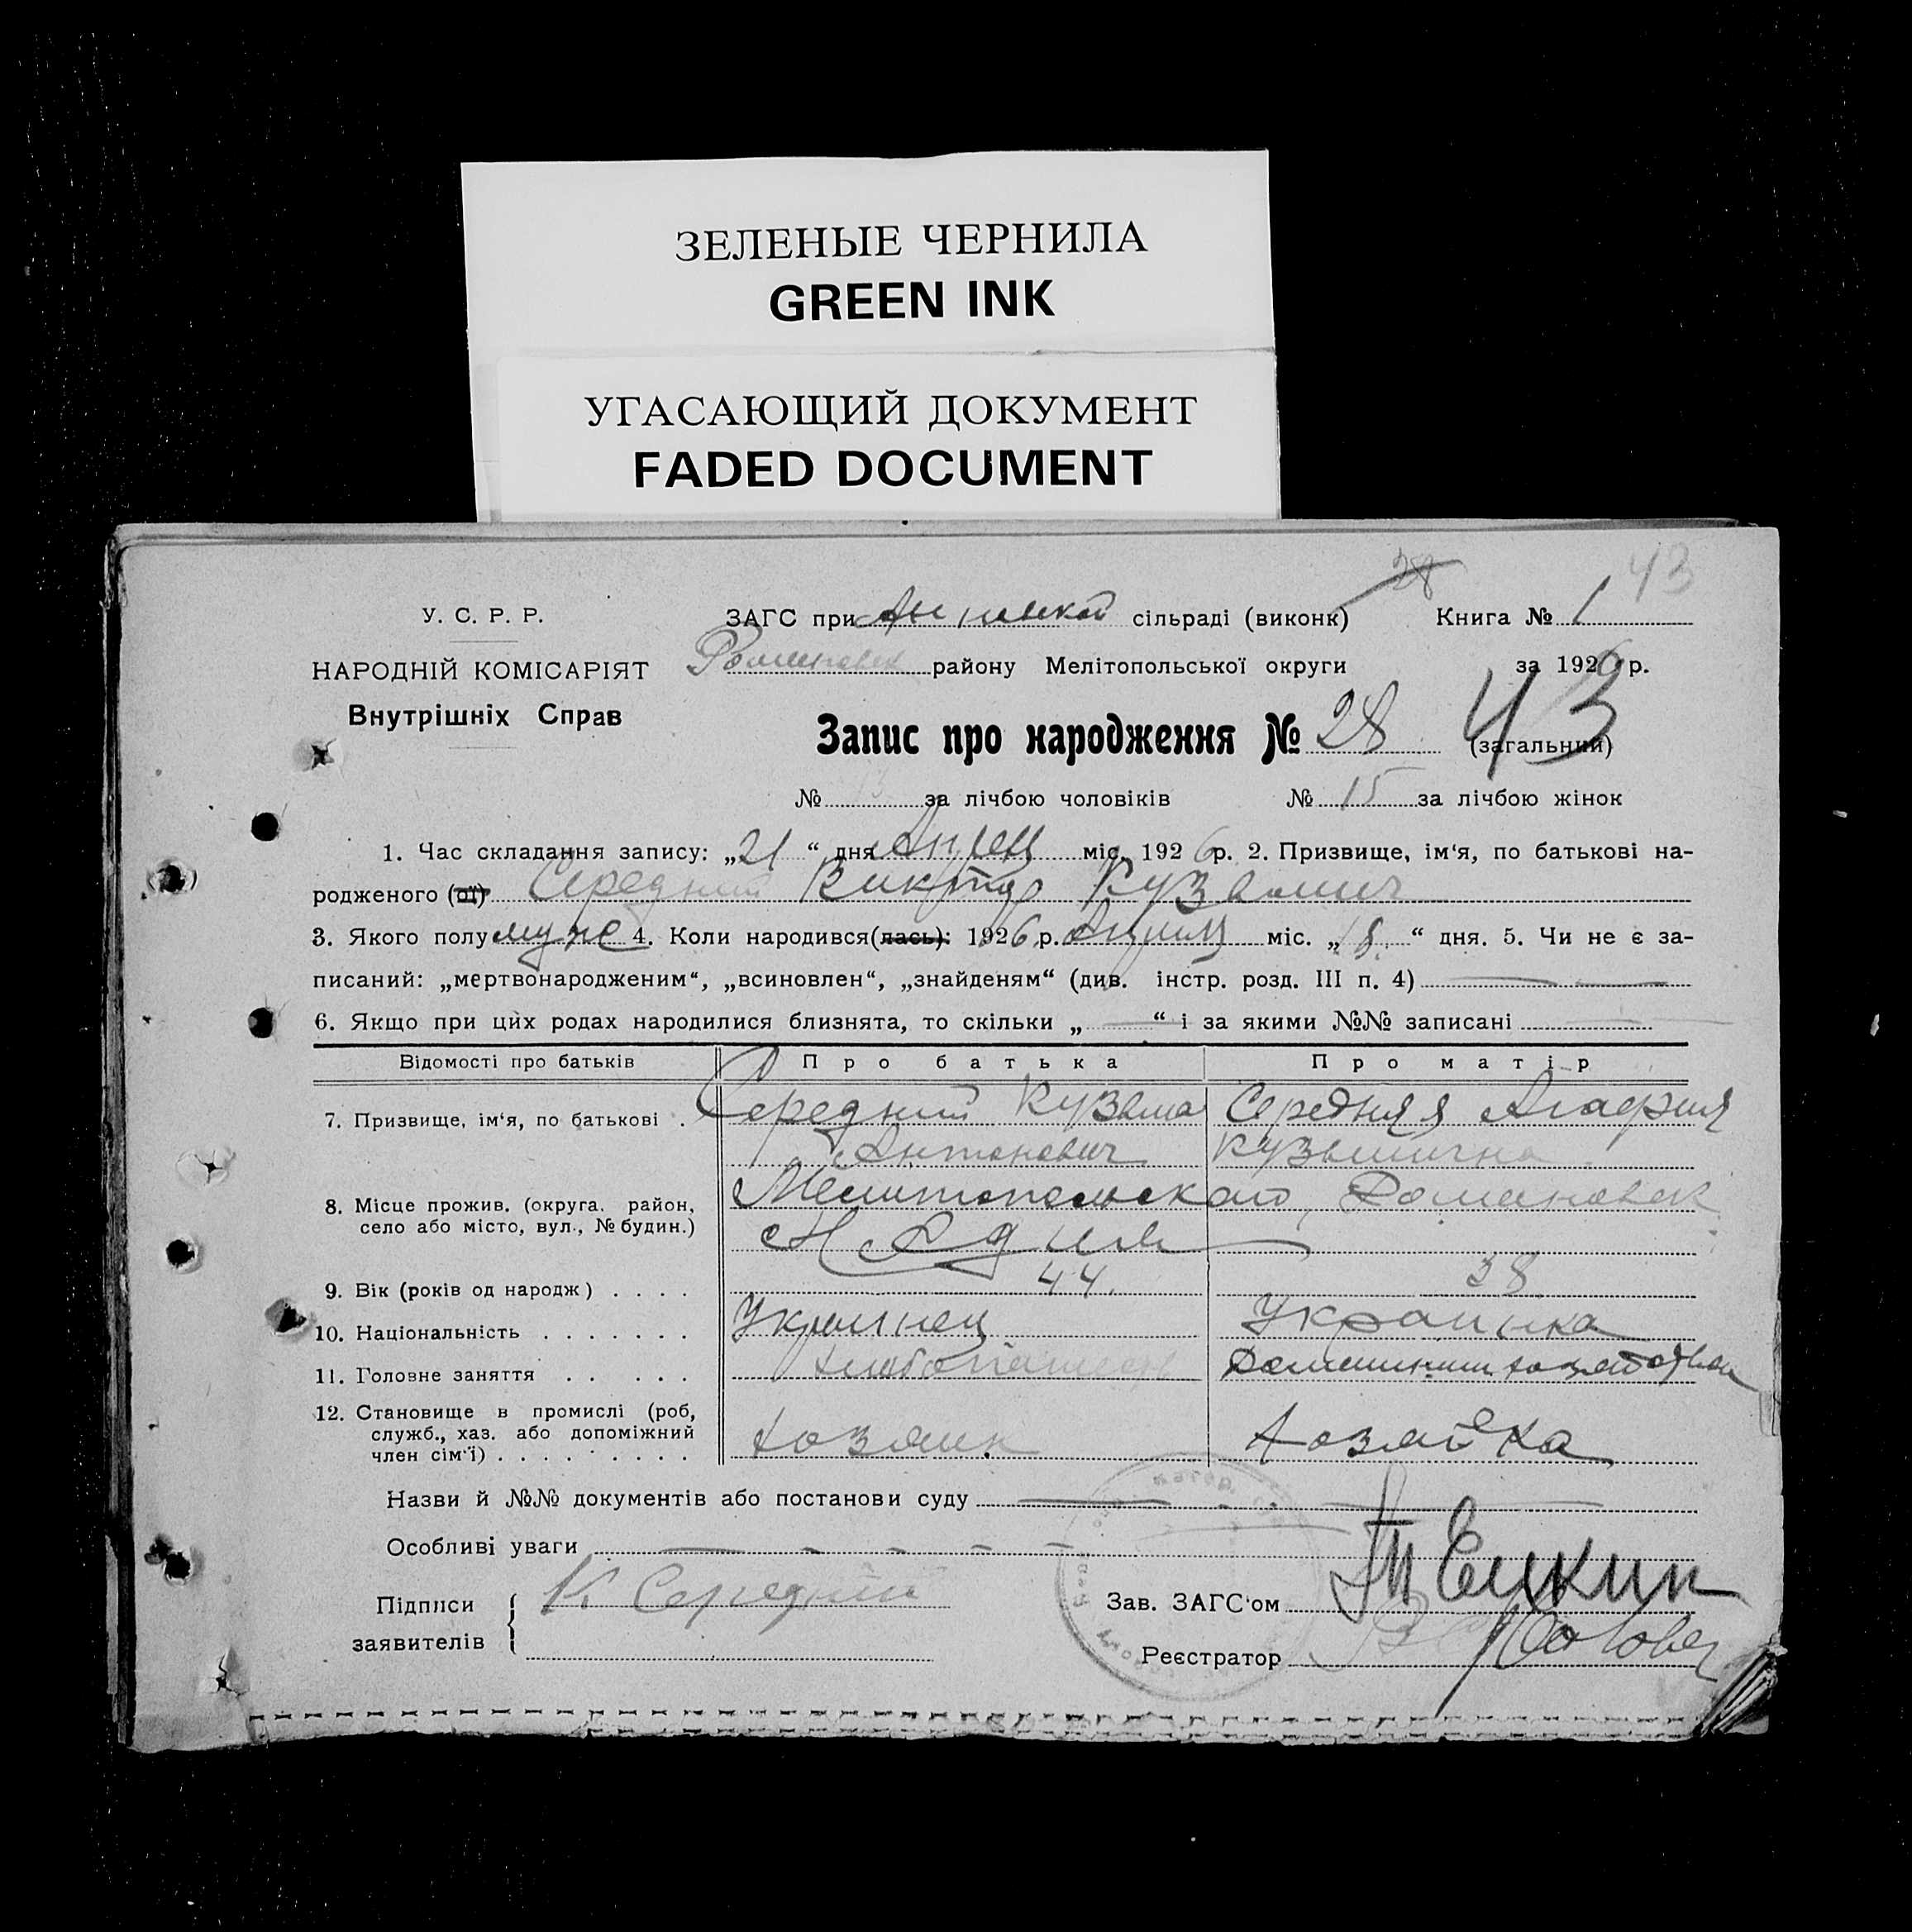 ЗЕЛЕНЫЕ ЧЕРНИЛА
GREEN INK
УГАСАЮЩИЙ ДОКУМЕНТ
FADED DOCUMENT
28 43
У. С. Р. Р. ЗАГС при сільраді (виконк) Книга № 1
НАРОДНІЙ КОМІСАРІЯТ району Мелітопольської округи за 1926 р.
Внутрішніх Справ
Запис про народження № 28 43 (загальний)
№ 13 за лічбою чоловіків № 15 за лічбою жінок
1. Час складання запису: „21“ дня міс. 1926 р. 2. Призвище, ім'я, по батькові на-
родженого (ої) Середний Виктор Кузьмич
3. Якого полу муж 4. Коли народився (лась): 1926 р. міс. „18“ дня. 5. Чи не є за-
писаний: „мертвонародженим“, „всиновлен“, „знайденям“ (див. інстр. розд. III п. 4)
6. Якщо при цих родах народилися близнята, то скільки „ “ і за якими №№ записані
Відомості про батьків Про батька Про матір
7. Призвище, ім'я, по батькові . Середний Кузьма Середняя Агафия
Антонович Кузьминична
8. Місце прожив. (округа, район, Мелитопольского, Романовск
село або місто, вул., № будин.)
9. Вік (років од народж) . . . . 44. 38.
10. Національність . . . . . . . Украинец Украинка
11. Головне заняття . . . . . Хлебопашец
12. Становище в промислі (роб,
служб., хаз. або допоміжний Хозяин. Хозяйка
член сім'ї) . . . . . . . . .
Назви й №№ документів або постанови суду
Особливі уваги
Підписи К Середний Зав. ЗАГС'ом
заявителів Реєстратор